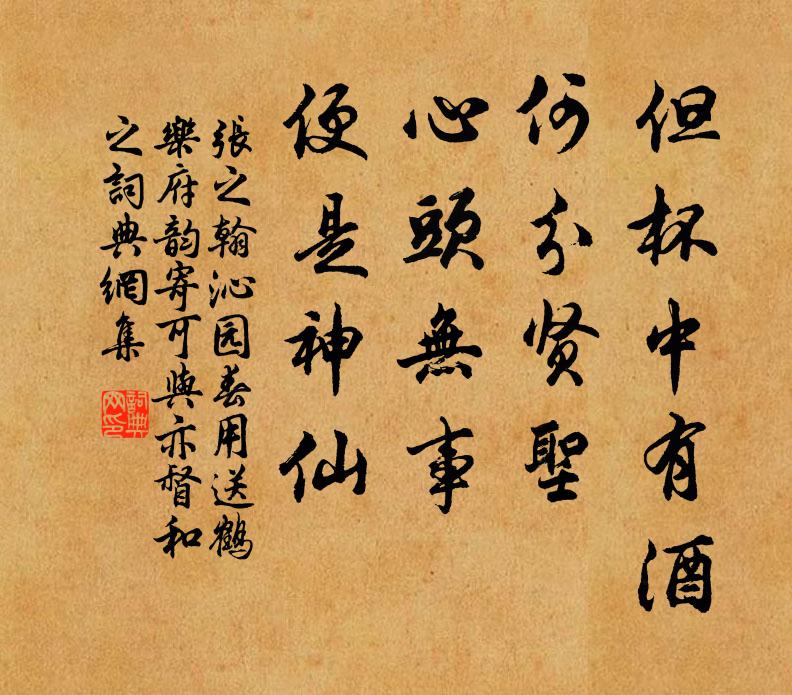 但杯中有酒
何分贤聖
心頭無事
便是神仙
張之翰沁园春用送鶴
樂府韵寄可與亦督和
之詞典網集
詞典
网印